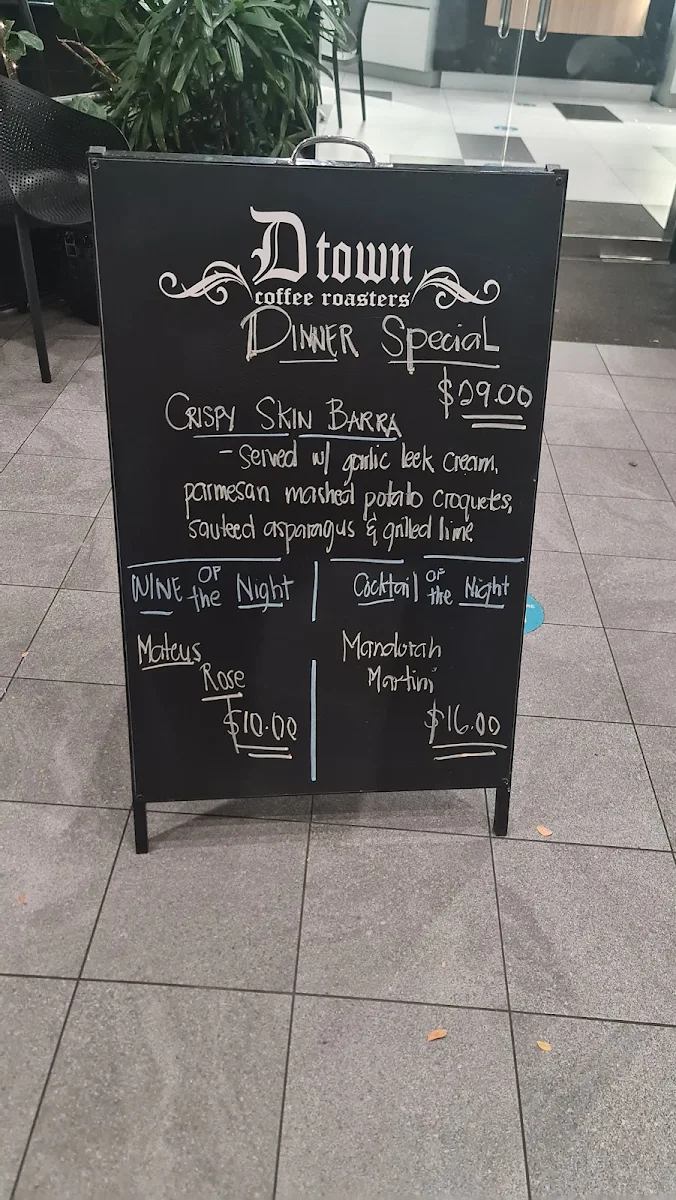 Dtown
coffee roasters
DINNER SpeciaL
$29.00
CRISPY SKIN BARRA
- Served w/ garlic leek cream,
parmesan mashed potato croquetes,
sauteed asparagus & grilled lime
WINE OF the Night
Mateus
Rose
$10.00
Cocktail OF the Night
Mandorah
Martini
$16.00